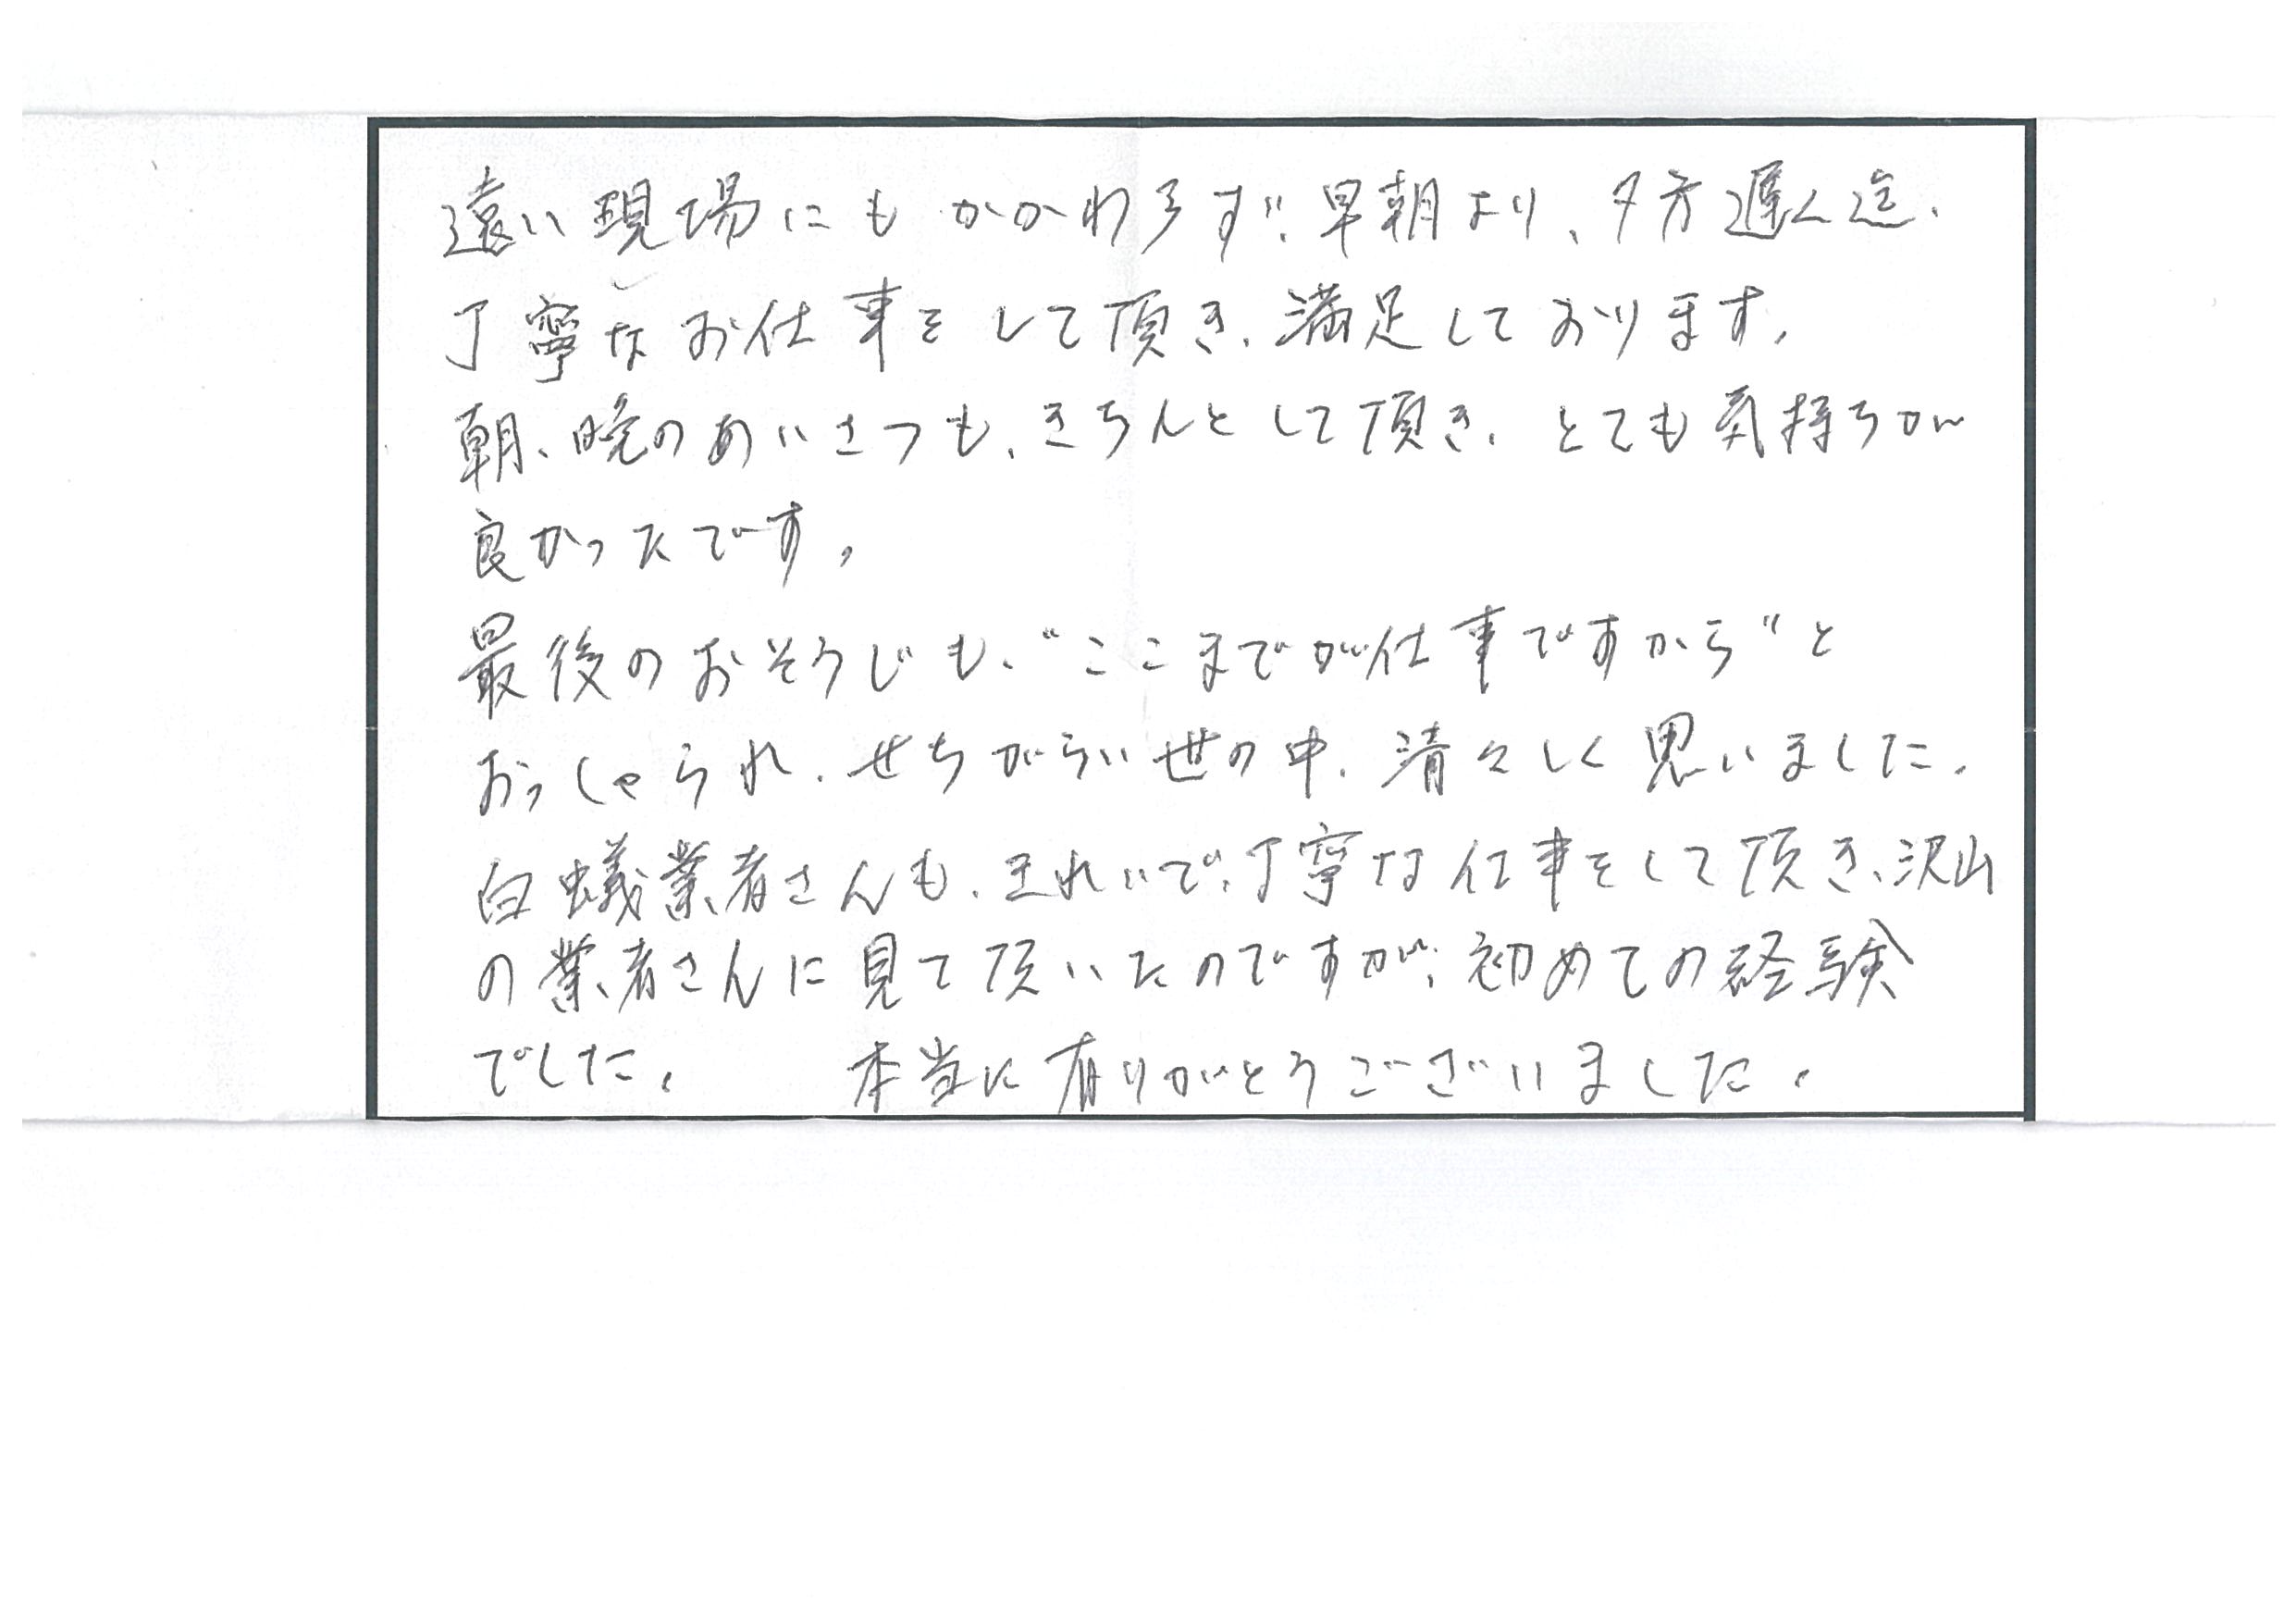 遠い現場にもかかわらず、早朝より、夕方遅く迄、
丁寧なお仕事をして頂き、満足しております。
朝、晩のあいさつも、きちんとして頂き、とても気持ちが
良かったです。
最後のおそうじも、“ここまでが仕事ですから”と
おっしゃられ、せちがらい世の中、清々しく思いました。
白蟻業者さんも、きれいで、丁寧な仕事をして頂き、沢山
の業者さんに見て頂いたのですが、初めての経験
でした。　本当に有りがとうございました。